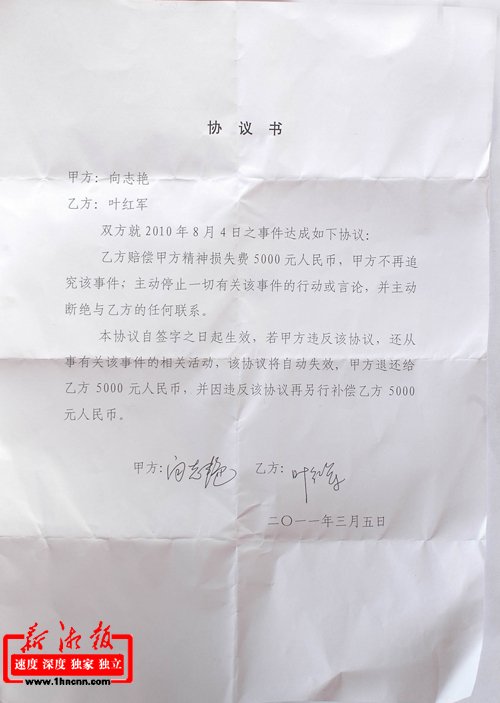 协 议 书
甲方：向志艳
乙方：叶红军
双方就 2010 年 8 月 4 日之事件达成如下协议：
乙方赔偿甲方精神损失费 5000 元人民币，甲方不再追
究该事件；主动停止一切有关该事件的行动或言论，并主动
断绝与乙方的任何联系。
本协议自签字之日起生效，若甲方违反该协议，还从
事有关该事件的相关活动，该协议将自动失效，甲方退还给
乙方 5000 元人民币，并因违反该协议再另行补偿乙方 5000
元人民币。
甲方：向志艳 乙方：叶红军
二〇一一年三月五日
新湘报
速度 深度 独家 独立
www.1hncnn.com